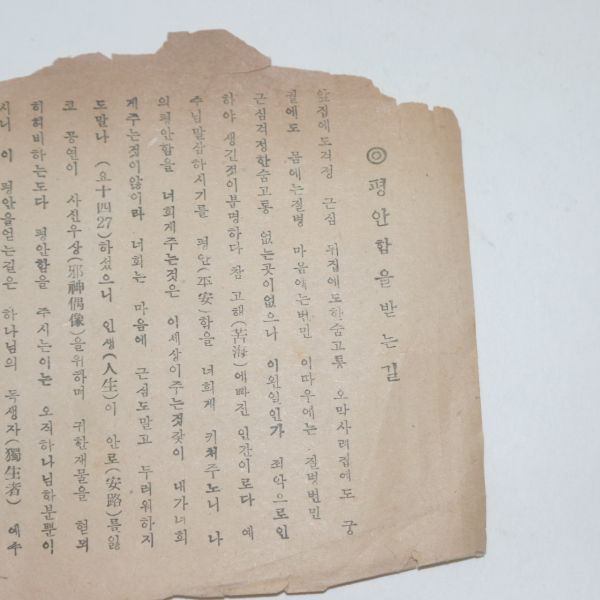 ◎ 평안함을 받는 길
앞집에도걱정 근심 뒤집에도한숨고통 오막사리집에도 궁
궐에도 몸에는질병 마음에는번민 이따우에는 질병번민
근심걱정한숨고통 없는곳이없으나 이왼일인가 죄악으로인
하야 생긴것이분명하다 참 고해(苦海)에빠진 인간이로다 예
수님말슴하시기를 평안(平安)함을 너희게 키처주노니 나
의평안함을 너희게주는것은 이세상이주는것갓이 내가너희
게주는것이않이라 너희는 마음에 근심도말고 두려워하지
도말나 (요十四27)하섯으니 인생(人生)이 안로(安路)를잃
코 공연이 사신우상(邪神偶像)을위하며 귀한재물을
히허비하는도다 평안함을 주시는이는 오직하나님한분뿐이
시니 이 평안을얻는길은 하나님의 독생자(獨生者) 예수